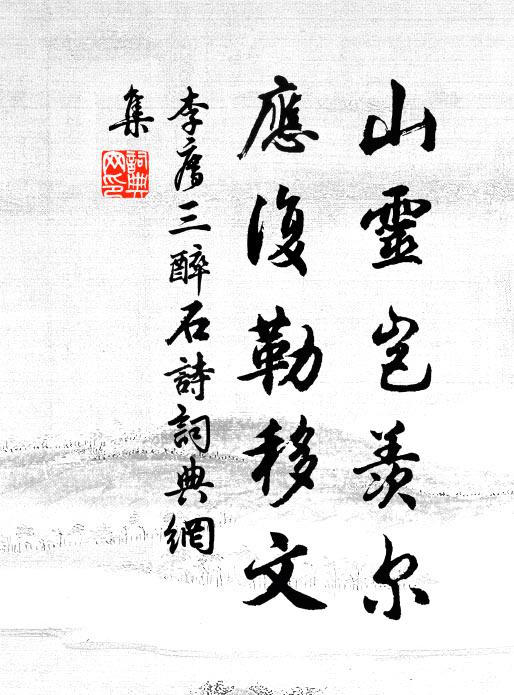 山靈岂羨尔
應復勒移文
李廌三醉石詩詞典網
集
詞典
网印